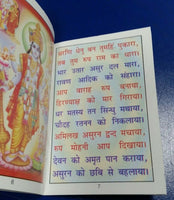 धरणि धेनु बन तुमहिं पुकारा,
तब तुम रूप राम का धारा।
भार उतार असुर दल मारा,
रावण आदिक को संहारा।
आप वाराह रूप बनाया,
हिरण्याक्ष को मार गिराया।
धर मत्स्य तन सिन्धु मथाया,
चौदह रतनन को निकलाया।
अमिलख असुरन द्वन्द मचाया,
रूप मोहनी आप दिखाया।
देवन को अमृत पान कराया,
असुरन को छबि से बहलाया।